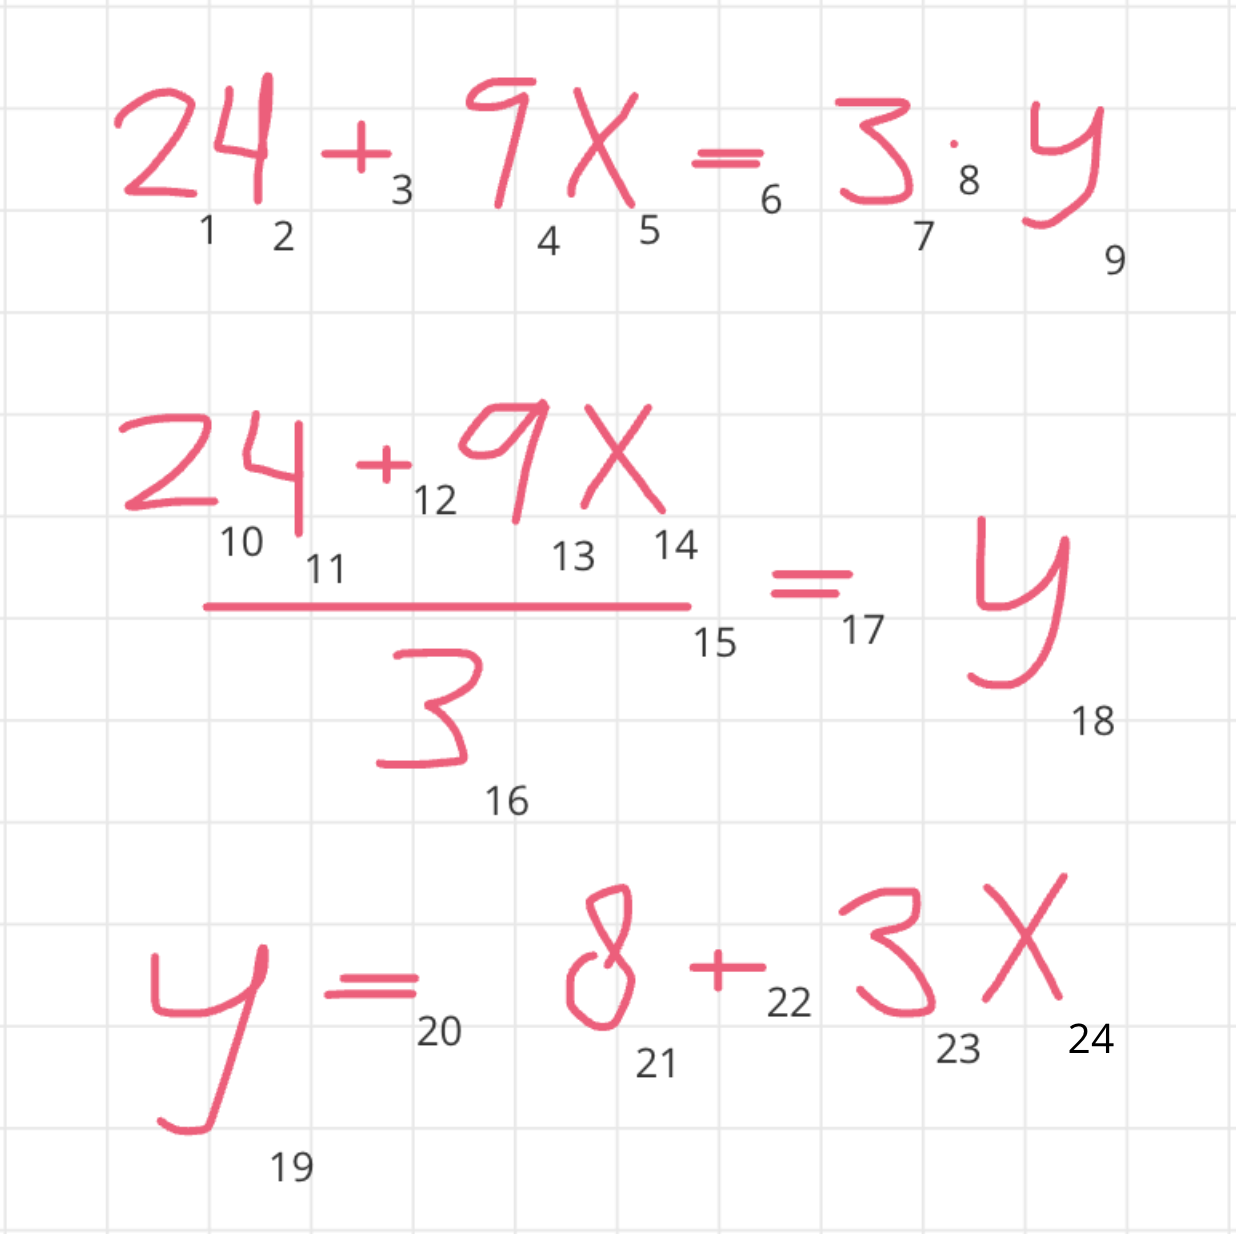 24 + 9x = 3 · y
1 2 3 4 5 6 7 8 9
24 + 9x
10 11 12 13 14
= y
15 17 18
3
16
y = 8 + 3x
19 20 21 22 23 24